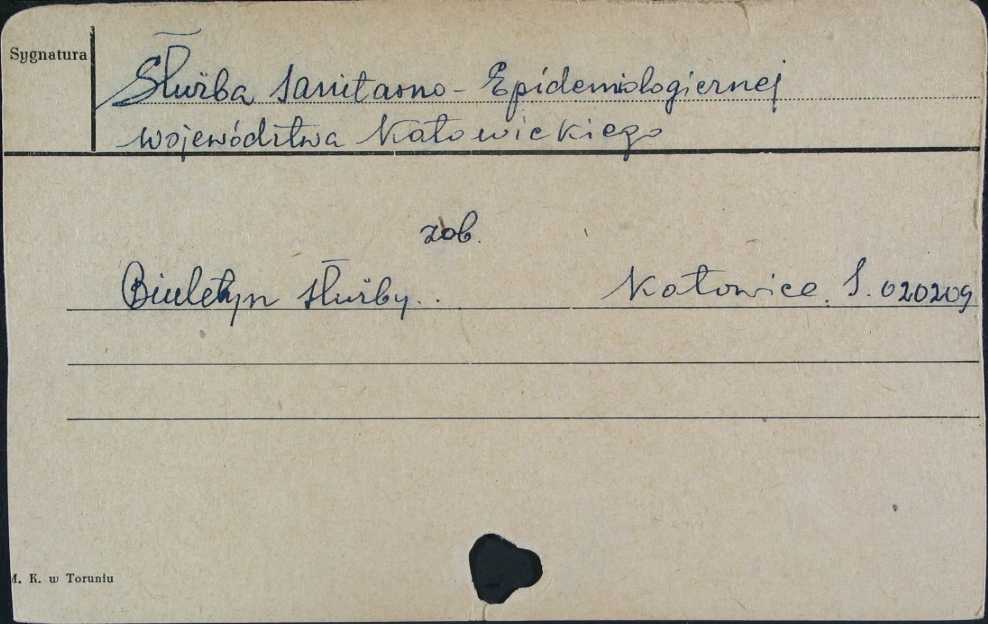 Sygnatura
Służba Sanitarno-Epidemiologicznej
województwa Katowickiego
zob.
Biuletyn służby.. Katowice. S. 020209
M. K. w Toruniu